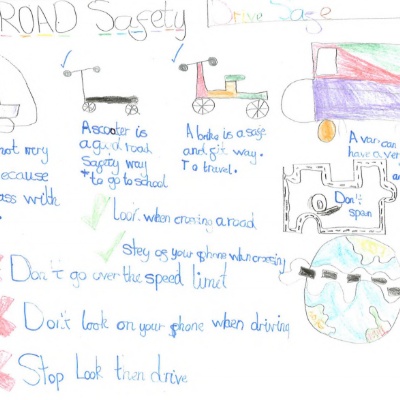 ROAD Safety Drive Safe
not very
because
ass with
A scooter is
a gud road
Safety way
to go to school
A bike is a safe
and fit way.
To travel.
A van can
have a ver
Don't
span
Look when crossing a road
stey of your phone when crossing
Don't go over the speed limit
Don't look on your phone when driving
Stop Look then drive